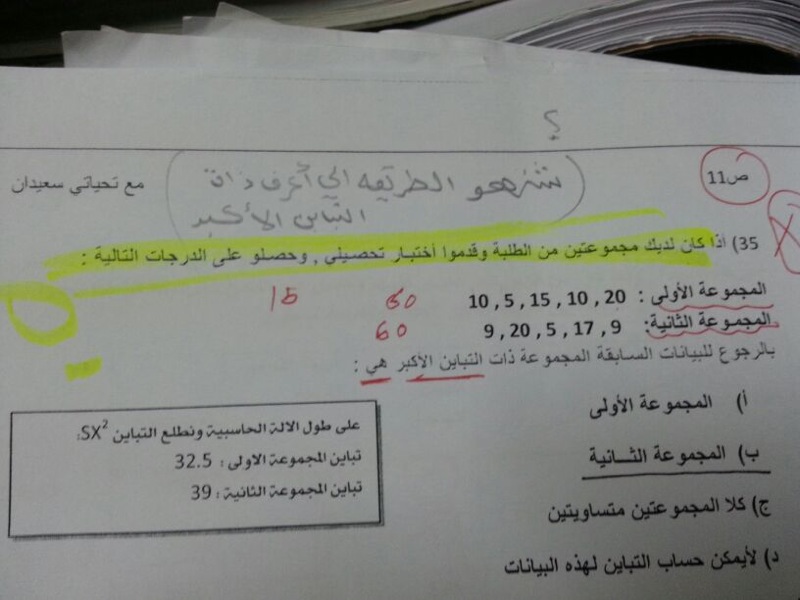 ؟
ص11
شنهو الطريقه الي أعرف ذات
التباين الأكبر
مع تحياتي سعيدان
35) أذا كان لديك مجموعتين من الطلبة وقدموا أختبار تحصيلي , وحصلو على الدرجات التالية :
المجموعة الأولى : 20 , 10 , 15 , 5 , 10 60 15
المجموعة الثانية: 9 , 17 , 5 , 20 , 9 60
بالرجوع للبيانات السابقة المجموعة ذات التباين الأكبر هي :
أ) المجموعة الأولى
ب) المجموعة الثـــانية
ج) كلا المجموعتين متساويتين
د) لأيمكن حساب التباين لهذه البيانات
على طول الالة الحاسبية ونطلع التباين SX²:
تباين المجموعة الاولى : 32.5
تباين المجموعة الثانية : 39